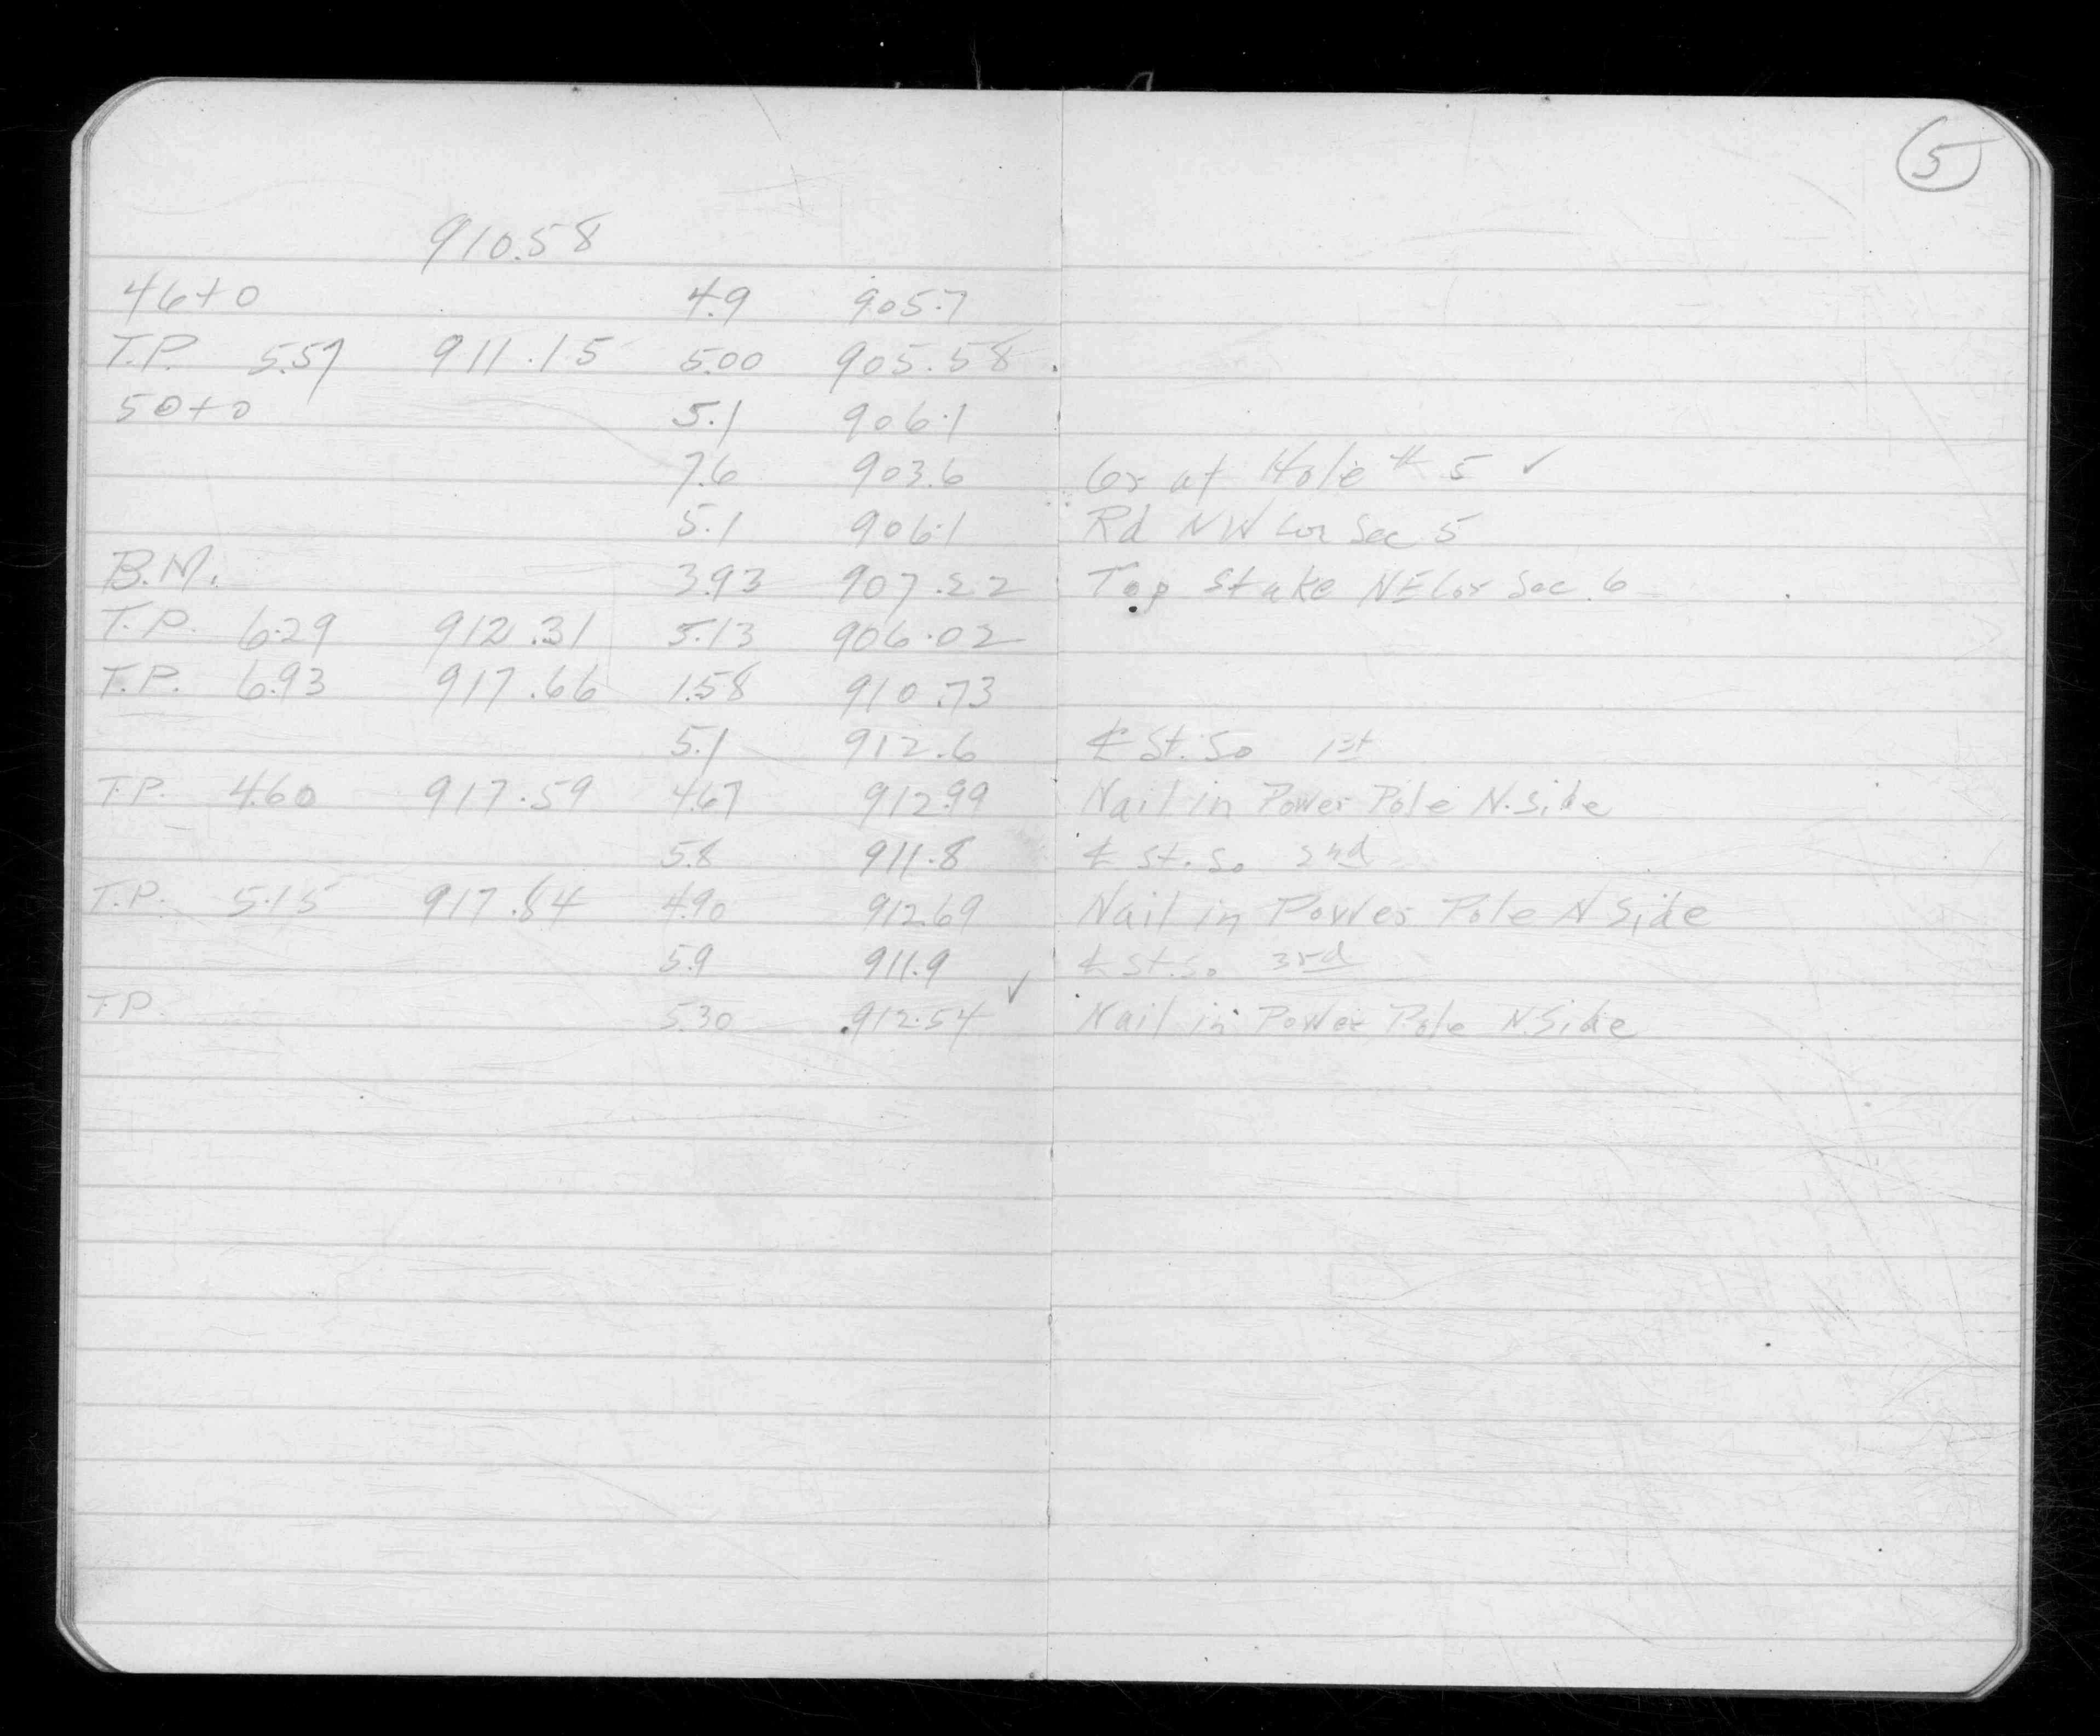 5
910.58
46+0 4.9 905.7
T.P. 5.57 911.15 5.00 905.58
50+0 5.1 906.1
7.6 903.6 Gr at Hole # 5 ✓
5.1 906.1 Rd NW Cor Sec 5
B.M. 3.93 907.22 Top Stake NE Cor Sec. 6
T.P. 6.29 912.31 5.13 906.02
T.P. 6.93 917.66 1.58 910.73
5.1 912.6 ℄ St. So 1st
T.P. 4.60 917.59 4.67 912.99 Nail in Power Pole N. Side
5.8 911.8 ℄ St. So 2nd
T.P. 5.15 917.84 4.90 912.69 Nail in Power Pole N Side
5.9 911.9 ℄ St. So 3rd
T.P. 5.30 912.54 ✓ Nail in Power Pole N. Side